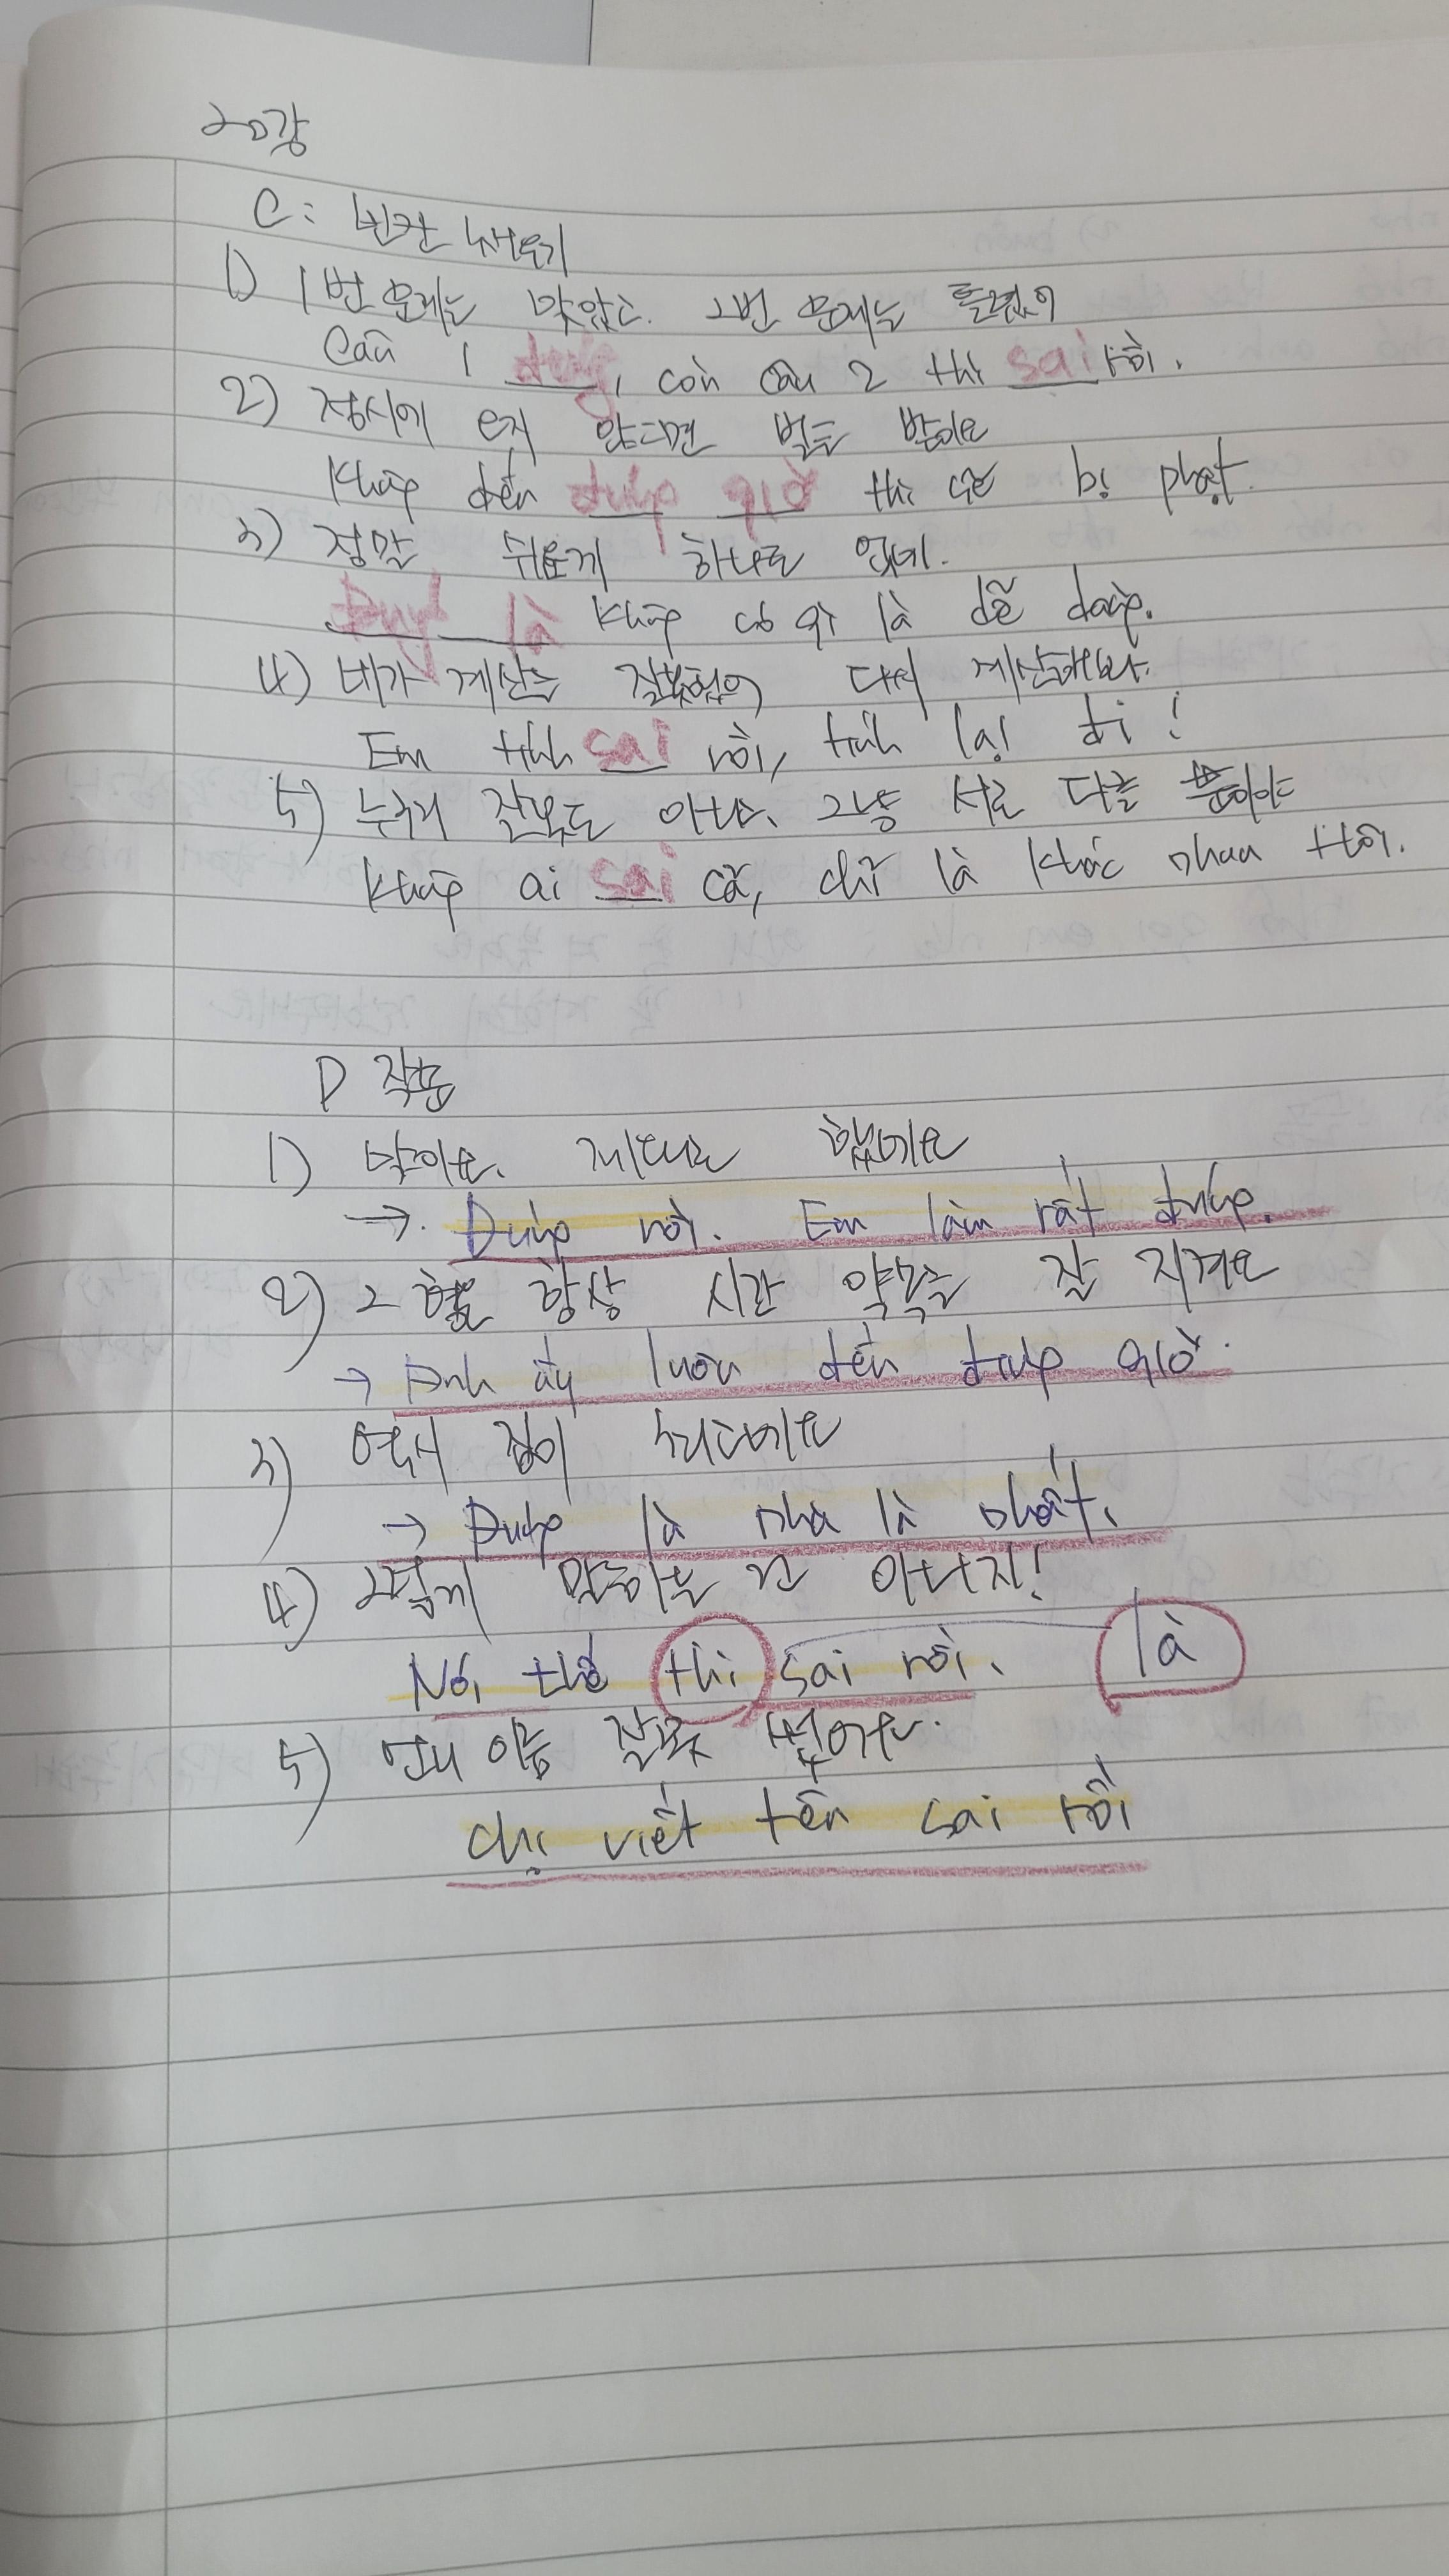 20강
C: 빈칸 채우기
1) 1번 문제는 맞았고. 2번 문제는 틀렸어
Câu 1 đúng, còn câu 2 thì sai rồi.
2) 정시에 오지 않으면 벌을 받아요
Không đến đúng giờ thì sẽ bị phạt.
3) 정말 쉬운게 하나도 없네.
Đúng là không có gì là dễ dàng.
4) 네가 계산을 잘못했어, 다시 계산해봐.
Em tính sai rồi, tính lại đi!
5) 누구의 잘못도 아니고. 그냥 서로 다를 뿐이야
Không ai sai cả, chỉ là khác nhau thôi.
D 작문
1) 맞아요. 제대로 했네요
→. Đúng rồi. Em làm rất đúng.
2) 그 형은 항상 시간 약속을 잘 지켜요
→ Anh ấy luôn đến đúng giờ.
3) 역시 집이 최고네요
→ Đúng là nhà là nhất.
4) 그렇게 말하는 건 아니지!
Nói thế thì sai rồi. là
5) 언니 이름 잘못 썼어요.
chị viết tên sai rồi